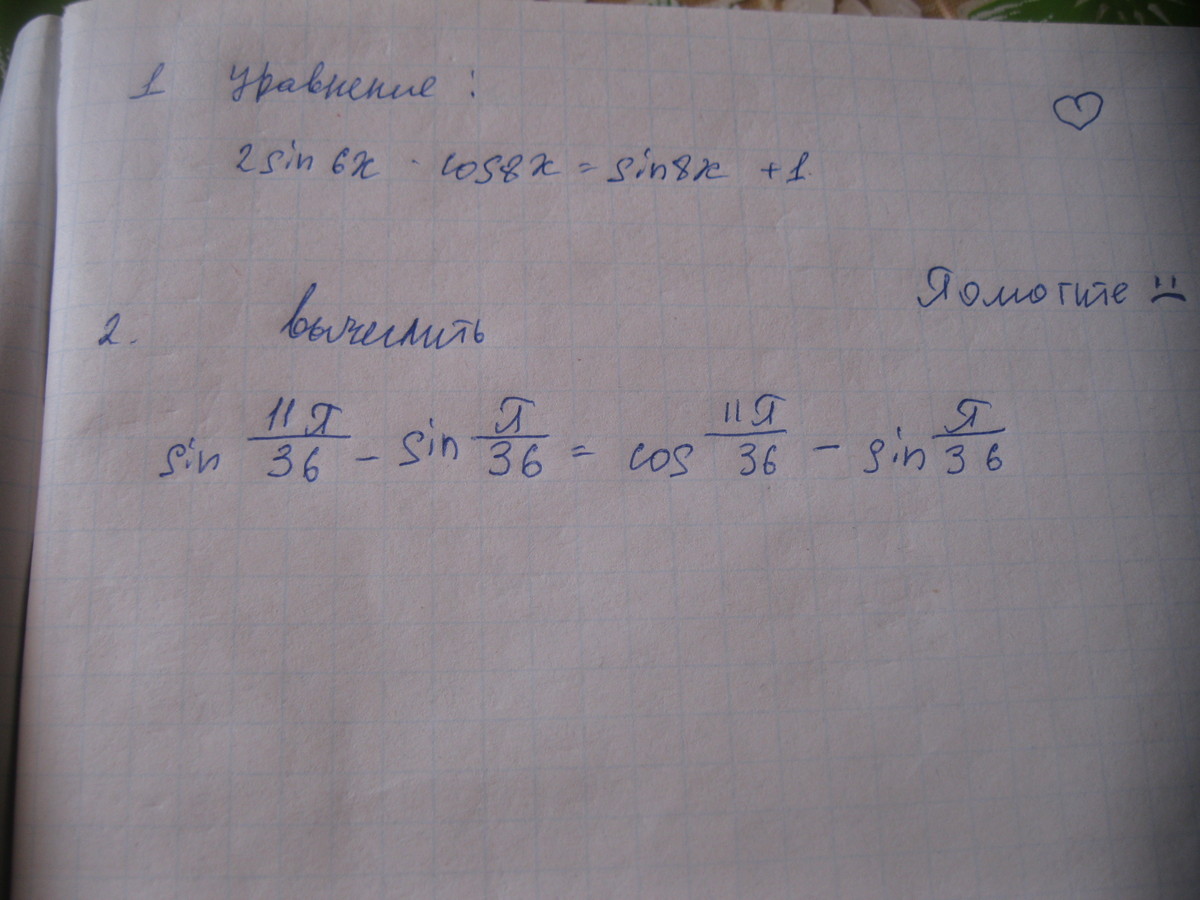 1 Уравнение :
2sin 6x · cos8x = sin8x + 1.
Помогите
2. Вычеслить
sin 11π/36 - sin π/36 = cos 11π/36 - sin π/36